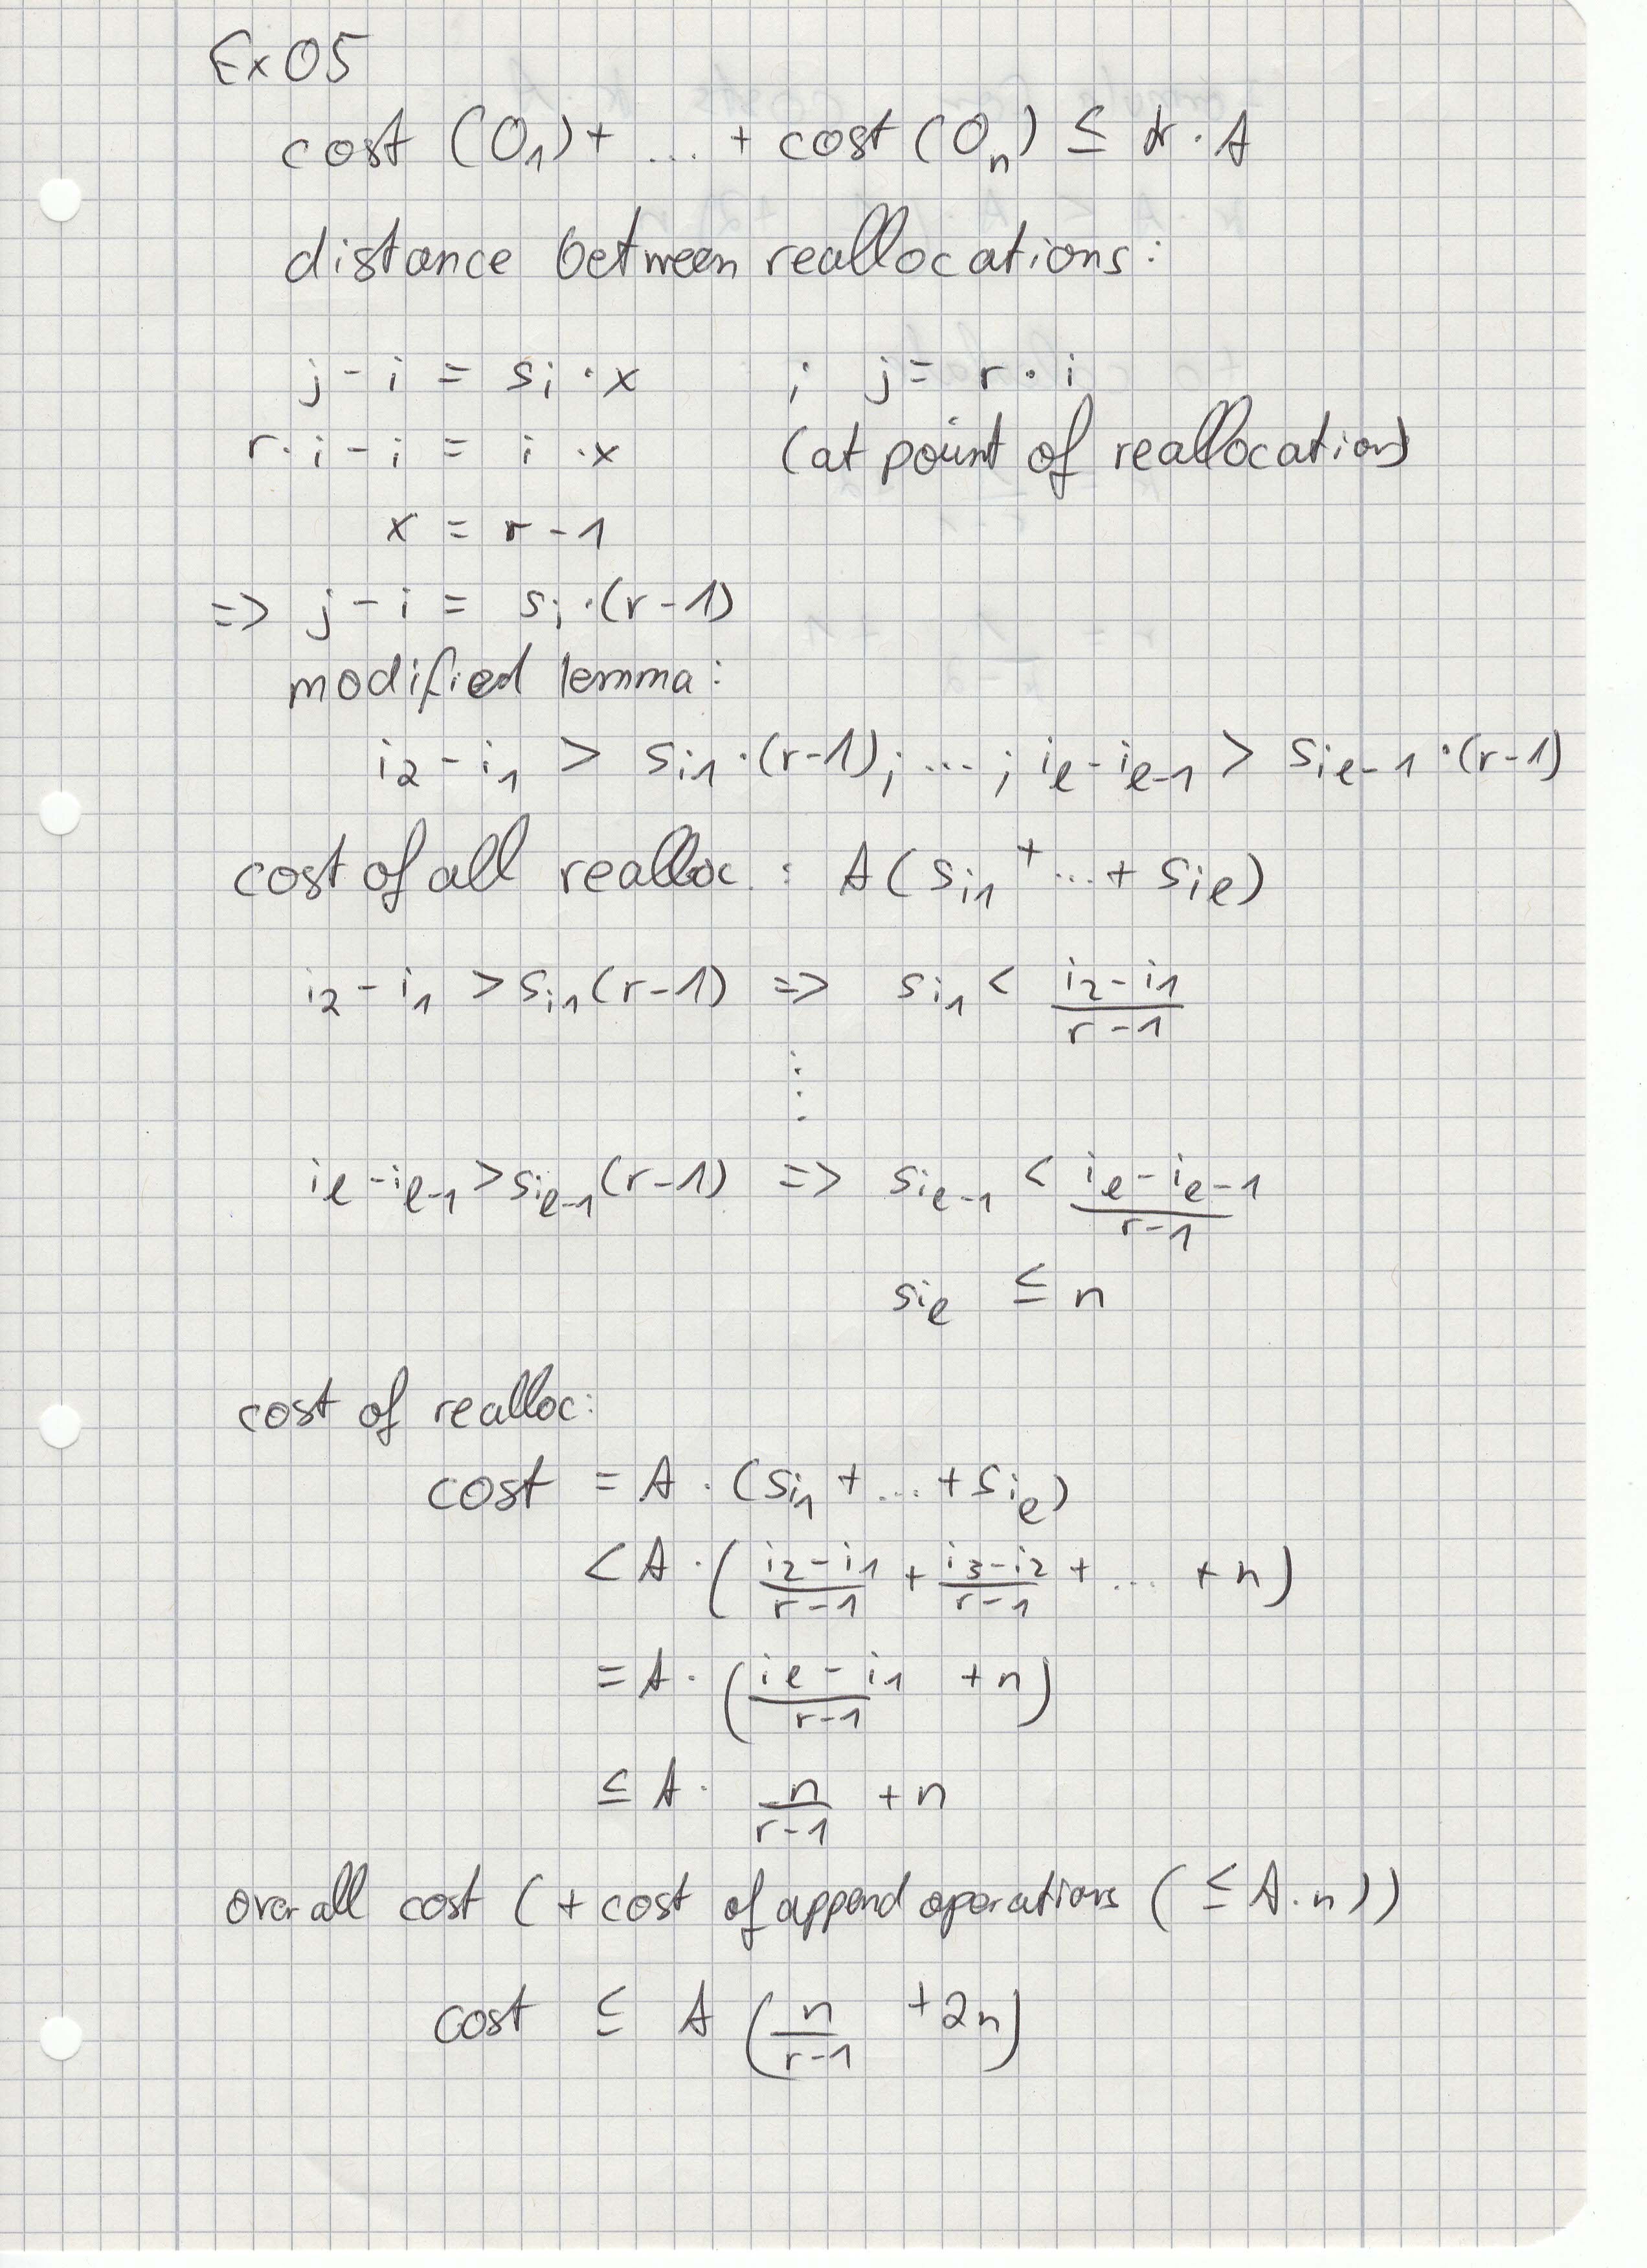 Ex 05
cost (O₁) + ... + cost (Oₙ) ≤ k · A
distance between reallocations:
j - i = sᵢ · x ; j = r · i
r · i - i = i · x (at point of reallocation)
x = r - 1
=> j - i = sᵢ · (r - 1)
modified lemma:
i₂ - i₁ > s_i₁ · (r - 1); ... ; i_ℓ - i_ℓ-1 > s_i_ℓ-1 · (r - 1)
cost of all realloc. : A (s_i₁ + ... + s_i_ℓ)
i₂ - i₁ > s_i₁ (r - 1) => s_i₁ < (i₂ - i₁)/(r - 1)
⋮
i_ℓ - i_ℓ-1 > s_i_ℓ-1 (r - 1) => s_i_ℓ-1 < (i_ℓ - i_ℓ-1)/(r - 1)
s_i_ℓ ≤ n
cost of realloc:
cost = A · (s_i₁ + ... + s_i_ℓ)
< A · ((i₂ - i₁)/(r - 1) + (i₃ - i₂)/(r - 1) + ... + n)
= A · ((i_ℓ - i₁)/(r - 1) + n)
≤ A · n/(r - 1) + n
overall cost (+ cost of append operations (≤ A · n))
cost ≤ A (n/(r - 1) + 2n)